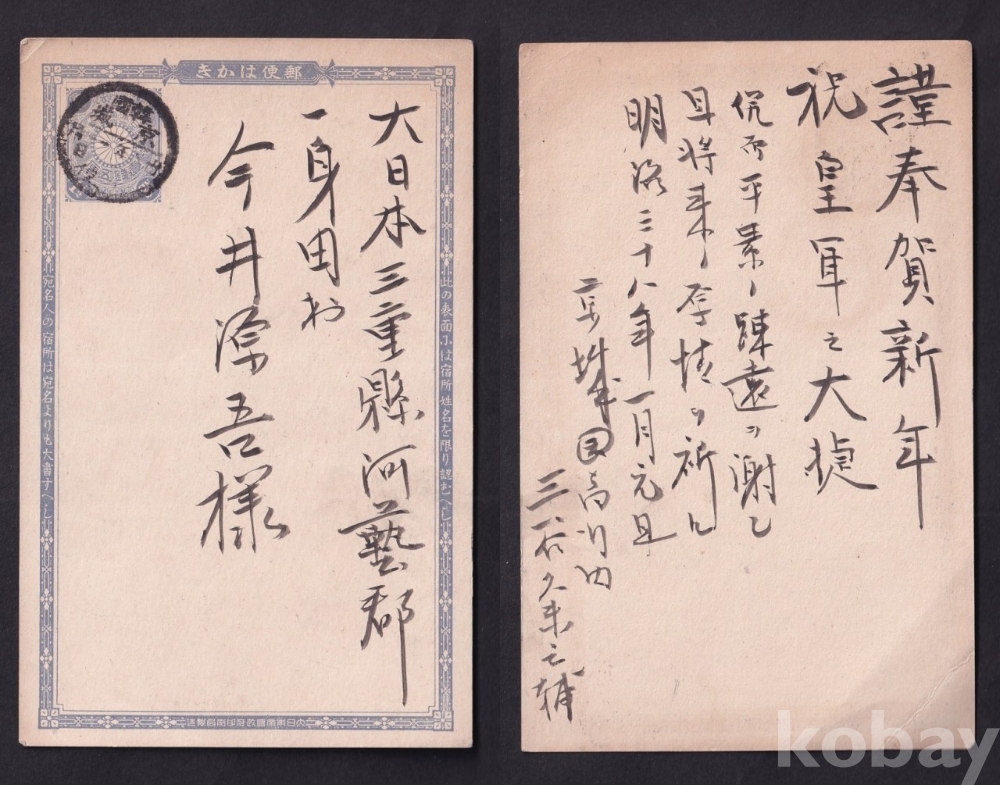 郵便はかき
大日本三重縣河藝郡
一身田村
今井源吾様
此の表面には宿所姓名を限り認むへし
宛名人の宿所は宛名よりも大書すへし
大日本帝國政府印刷局製造
謹奉賀新年
祝皇軍之大捷
併而平素ノ踈遠ヲ謝し
且将来ノ厚情ヲ祈ル
明治三十八年一月元旦
京城
三谷久米之輔
kobay